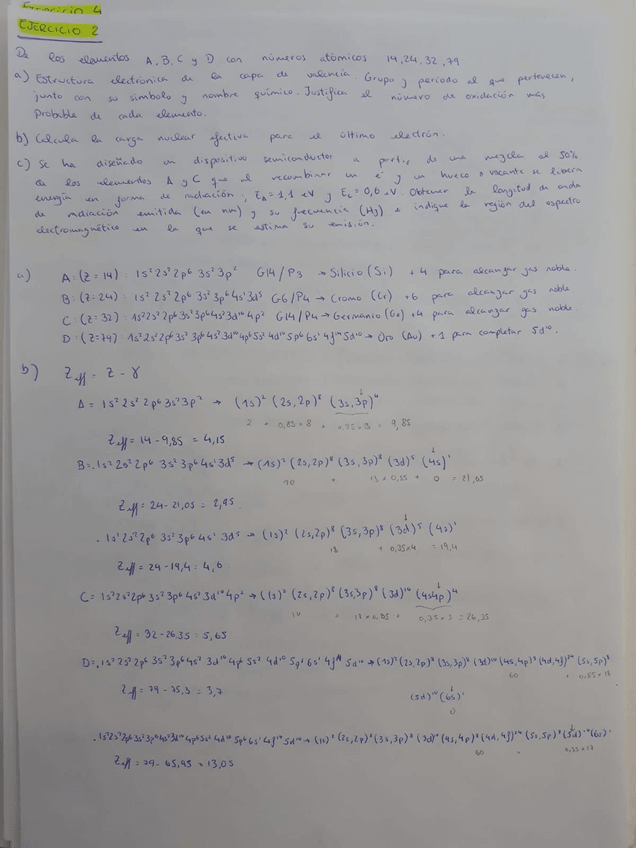 Ejercicio 4
EJERCICIO 2
De los elementos A, B, C y D con números atómicos 14, 24, 32, 79
a) Estructura electrónica de la capa de valencia. Grupo y período al que pertenecen,
junto con su símbolo y nombre químico. Justifica el número de oxidación más
probable de cada elemento.
b) Calcula la carga nuclear efectiva para el último electrón.
c) Se ha diseñado un dispositivo semiconductor a partir de una mezcla al 50%
de los elementos A y C que al recombinar un e⁻ y un hueco o vacante se libera
energía en forma de radiación, EA = 1,1 eV y EC = 0,6 eV. Obtener la longitud de onda
de radiación emitida (en nm) y su frecuencia (Hz) e indique la región del espectro
electromagnético en la que se estima su emisión.
a) A: (Z=14): 1s² 2s² 2p⁶ 3s² 3p² G14/P3 → Silicio (Si) +4 para alcanzar gas noble.
B: (Z=24): 1s² 2s² 2p⁶ 3s² 3p⁶ 4s¹ 3d⁵ G6/P4 → Cromo (Cr) +6 para alcanzar gas noble
C: (Z=32): 1s² 2s² 2p⁶ 3s² 3p⁶ 4s² 3d¹⁰ 4p² G14/P4 → Germanio (Ge) +4 para alcanzar gas noble
D: (Z=79): 1s² 2s² 2p⁶ 3s² 3p⁶ 4s² 3d¹⁰ 4p⁶ 5s² 4d¹⁰ 5p⁶ 6s¹ 4f¹⁴ 5d¹⁰ → Oro (Au) +1 para completar 5d¹⁰.
b) Zeff = Z - γ
A = 1s² 2s² 2p⁶ 3s² 3p² → (1s)² (2s, 2p)⁸ (3s, 3p)⁴
2 + 0,85 × 8 + 0,35 × 3 = 9,85
Zeff = 14 - 9,85 = 4,15
B = . 1s² 2s² 2p⁶ 3s² 3p⁶ 4s¹ 3d⁵ → (1s)² (2s, 2p)⁸ (3s, 3p)⁸ (3d)⁵ (4s)¹
10 + 13 × 0,85 + 0 = 21,05
Zeff = 24 - 21,05 = 2,95.
. 1s² 2s² 2p⁶ 3s² 3p⁶ 4s¹ 3d⁵ → (1s)² (2s, 2p)⁸ (3s, 3p)⁸ (3d)⁵ (4s)¹
18 + 0,35 × 4 = 19,4
Zeff = 24 - 19,4 = 4,6
C = 1s² 2s² 2p⁶ 3s² 3p⁶ 4s² 3d¹⁰ 4p² → (1s)² (2s, 2p)⁸ (3s, 3p)⁸ (3d)¹⁰ (4s 4p)⁴
10 + 18 × 0,85 + 0,35 × 3 = 26,35
Zeff = 32 - 26,35 = 5,65
D = . 1s² 2s² 2p⁶ 3s² 3p⁶ 4s² 3d¹⁰ 4p⁶ 5s² 4d¹⁰ 5p⁶ 6s¹ 4f¹⁴ 5d¹⁰ → (1s)² (2s, 2p)⁸ (3s, 3p)⁸ (3d)¹⁰ (4s, 4p)⁸ (4d, 4f)²⁴ (5s, 5p)⁸
60 + 0,85 × 18
Zeff = 79 - 75,3 = 3,7 (5d)¹⁰ (6s)¹
0
. 1s² 2s² 2p⁶ 3s² 3p⁶ 4s² 3d¹⁰ 4p⁶ 5s² 4d¹⁰ 5p⁶ 6s¹ 4f¹⁴ 5d¹⁰ → (1s)² (2s, 2p)⁸ (3s, 3p)⁸ (3d)¹⁰ (4s, 4p)⁸ (4d, 4f)²⁴ (5s, 5p)⁸ (5d)¹⁰ (6s)¹
60
Zeff = 79 - 65,95 = 13,05